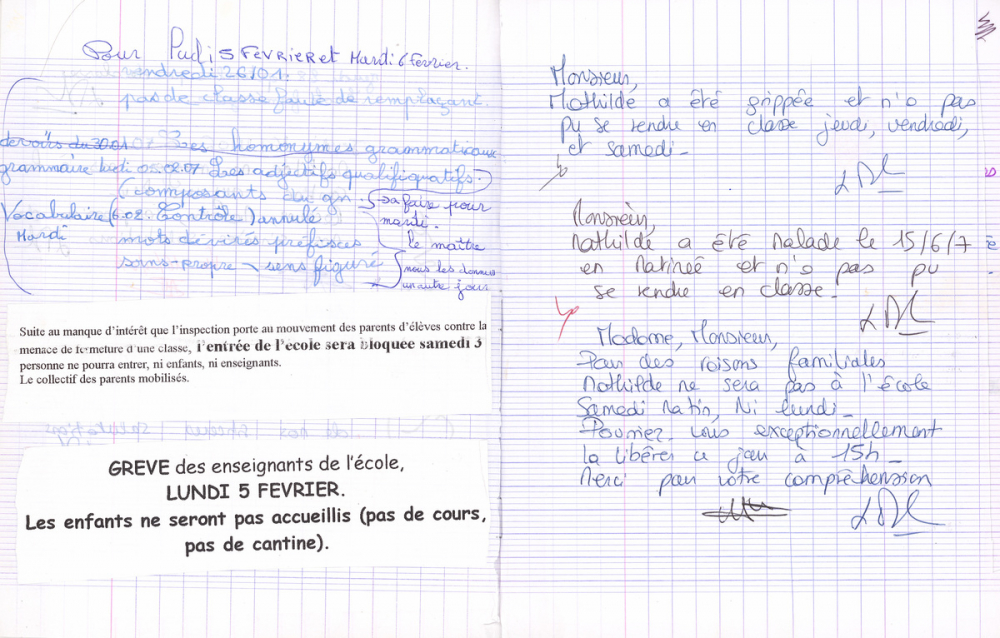 Pour lundi 5 FEVRIER et Mardi 6 fevrier.
vendredi 26/01:
pas de classe faute de remplaçant.
devoirs du 30.01 Les homonymes grammaticaux
grammaire lundi 05.02.07 Les adjectifs qualifiquatifs.
(composants du gn
sa faire pour
mardi.
Vocabulaire (6.02. Contrôle) annulé
Mardi
mots dévirés préfisces
le maître
sans-propre sens figuré
nous les donnera
un autre jour
Suite au manque d'intérêt que l'inspection porte au mouvement des parents d'élèves contre la
menace de fermeture d'une classe, l'entrée de l'ecole sera bloquée samedi 3
personne ne pourra entrer, ni enfants, ni enseignants.
Le collectif des parents mobilisés.
GREVE des enseignants de l'école,
LUNDI 5 FEVRIER.
Les enfants ne seront pas accueillis (pas de cours,
pas de cantine).
Monsieur,
Mathilde a été grippée et n'a pas
pu se rendre en classe jeudi, vendredi,
et samedi.
Monsieur,
Mathilde a été malade le 15/6/7
en matineé et n'a pas pu
se rendre en classe.
Madame, Monsieur,
Pour des raisons familiales
Mathilde ne sera pas à l'école
Samedi matin, Ni lundi.
Pourriez-vous exceptionnellement
la libérer ce jeudi à 15h.
Merci pour votre compréhension